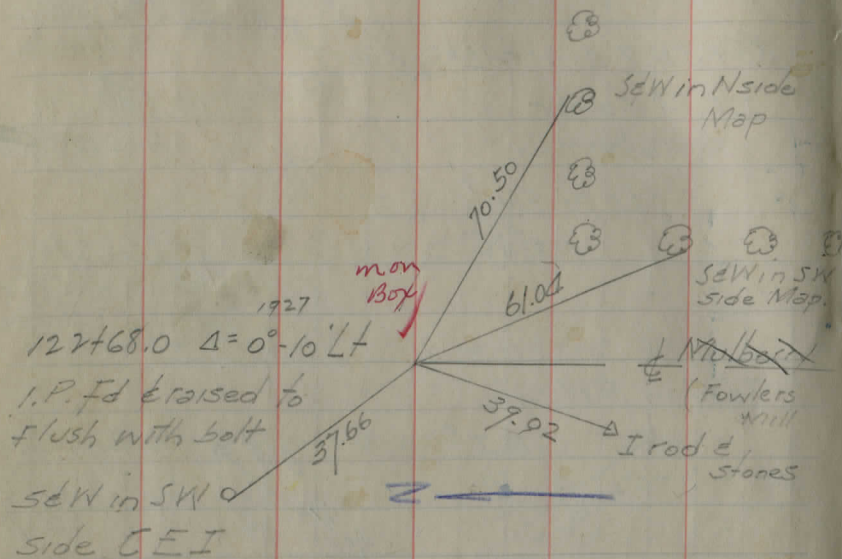 S&W in N side
Map
70.50
mon
Box
61.04
S&W in SW
side Map.
1927
122+68.0 Δ= 0°-10' Lt
I.P. Fd & raised to
flush with bolt
℄ Mulberry
(Fowlers
Mill
39.92
I rod &
stones
37.66
S&W in SW
side CEI
Z